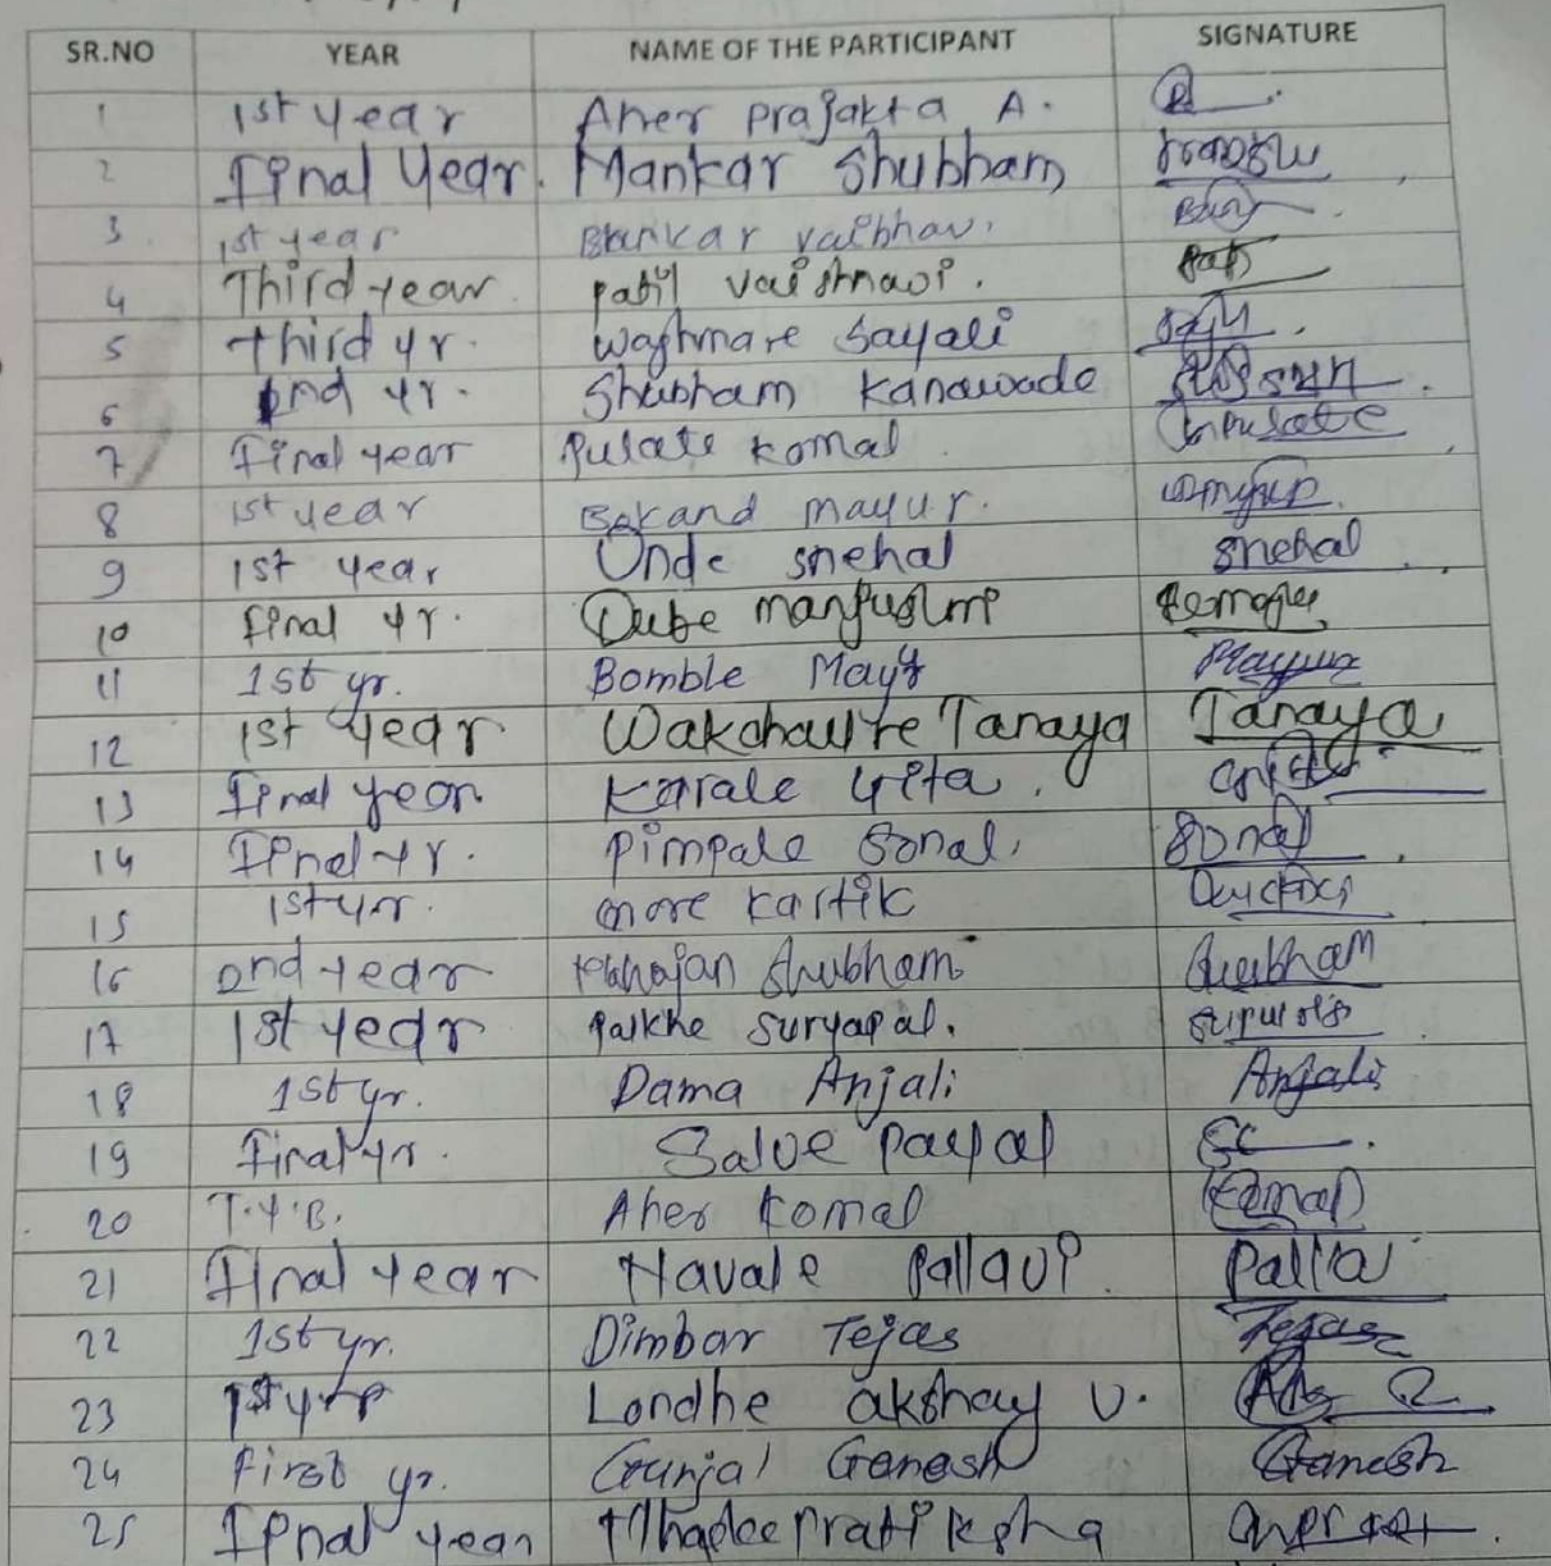 SR.NO YEAR NAME OF THE PARTICIPANT SIGNATURE
1 1st year Aher Prajakta A.
2 Final Year. Mankar Shubham
3 1st year Bankar Vaibhav.
4 Third year patil vaishnavi.
5 third yr. Waghmare Sayali
6 2nd yr. Shubham Kanawade
7 Final year Pulate Komal
8 1st year mayur.
9 1st year Unde snehal snehal
10 final yr. Dube
11 1st yr. Bomble Mayur
12 1st year Wakchaure Tanaya Tanaya
13 Final year Karale Gita.
14 Final yr. Pimpale Sonal. Sonal
15 1st yr. more Kartik
16 2nd year Shubham Shubham
17 1st year palkhe suryapal.
18 1st yr. Dama Anjali Anjali
19 Final yr. Salve Payal
20 T.Y.B. Aher Komal Komal
21 Final year Havale Pallavi
22 1st yr. Dimbar Tejas Tejas
23 1st yr Londhe akshay V.
24 First yr. Gunjal Ganesh Ganesh
25 Final year Pratiksha